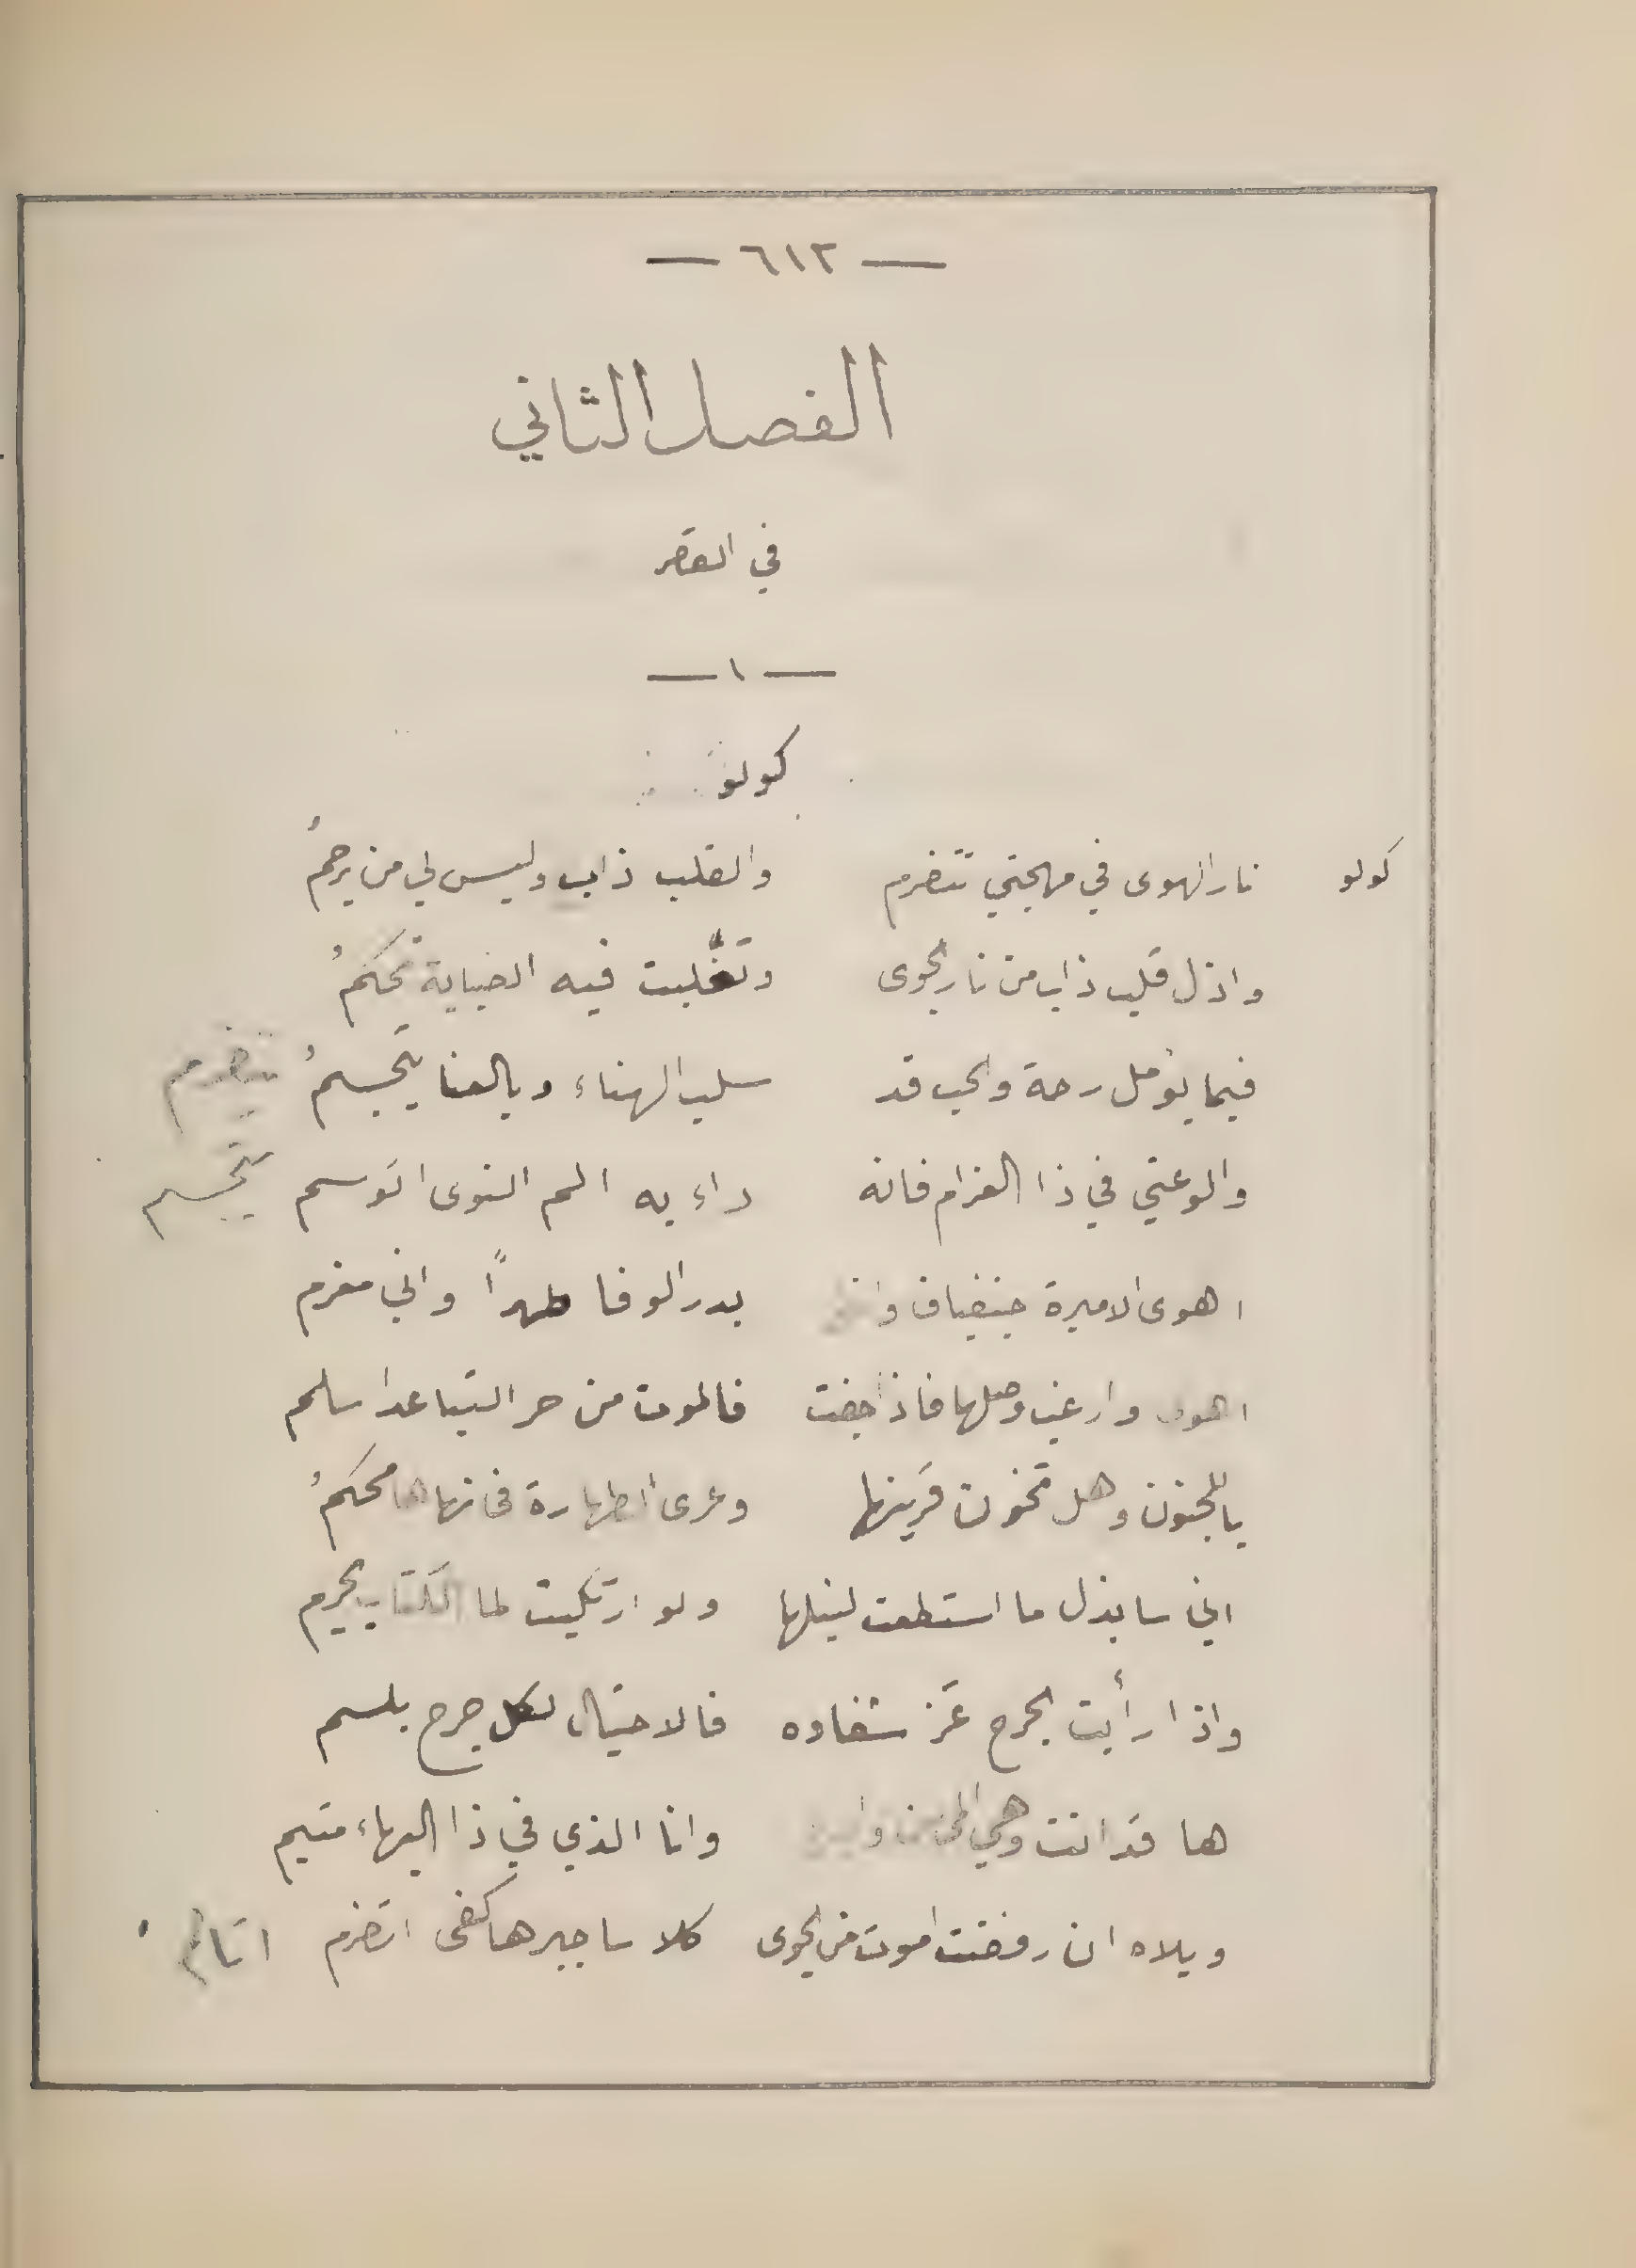 — ٦١٢ —
الفصل الثاني
في القصر
— ١ —
كولو
كولو نار الهوى في مهجتي تتضرم والقلب ذاب وليس لي من يرحمُ
واذل قلب ذاب من نار الجوى وتغلبت فيه الصبابة تحكمُ
فيما يؤمل رحمة والحب قد سلب الهناء وبالعنا يتجسمُ
والوعتي في ذا الغرام فانه داء به الم النوى اتوسم يتجسم
اهوى الاميرة جينفياف بدر الوفا طهراً واني مغرم
اهوى وارغب وصلها فاذا جفت فالموت من حر التباعد اسلم
يا للجنون وهل تخون قرينها وعرى الطهارة في محكمُ
اني سابذل ما استطعت لنيلها ولو ارتكبت لما الكتاب يحرم
واذا رأيت الجرح عَز شفاوه فالاحتيال لكل جرح بلسم
ها قد اتت وهي وانا الذي في ذا البهاء متيم
ويلاه ان رفضت اموت من الجوى كلا ساجبرها كفى اتضرم